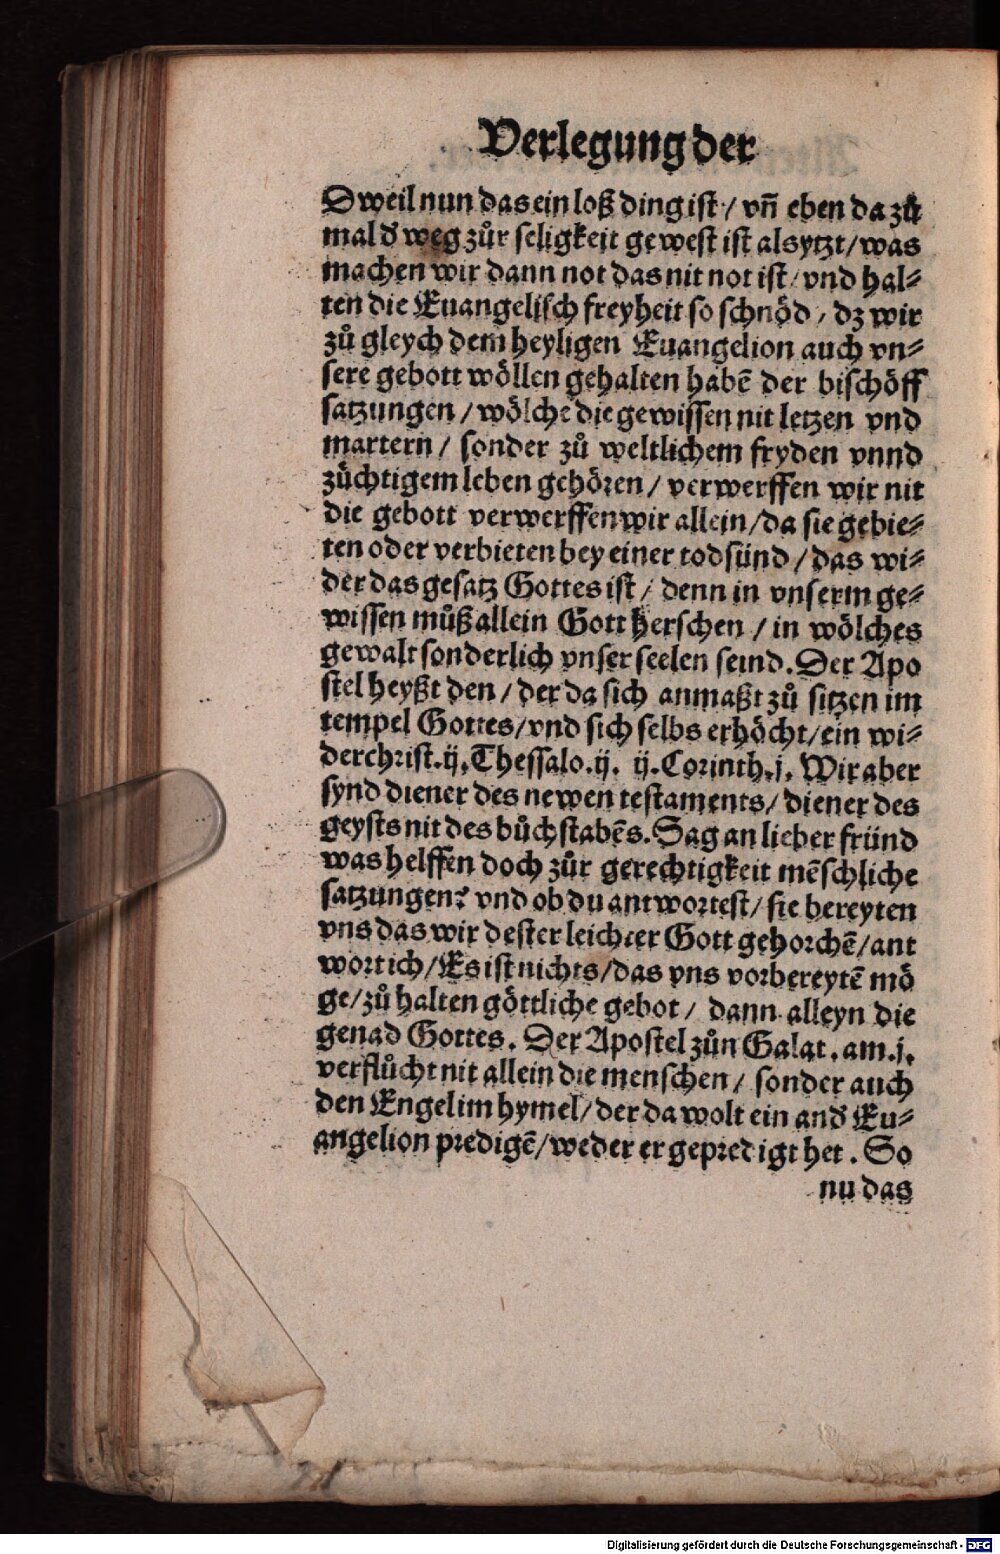 Verlegung der
Dweil nun das ein loß ding ist / vñ eben da zů
mal d̕ weg zůr seligkeit gewest ist als ytzt / was
machen wir dann not das nit not ist / vnd hal⸗
ten die Euangelisch freyheit so schnöd / dz wir
zů gleych dem heyligen Euangelion auch vn⸗
sere gebott wöllen gehalten habẽ der bischöff
satzungen / wölche die gewissen nit letzen vnd
martern / sonder zů weltlichem fryden vnnd
züchtigem leben gehören / verwerffen wir nit
die gebott verwerffen wir allein / da sie gebie⸗
ten oder verbieten bey einer todsünd / das wi⸗
der das gesatz Gottes ist / denn in vnserm ge⸗
wissen můß allein Gott herschen / in wölches
gewalt sonderlich vnser seelen seind. Der Apo
stel heyßt den / der da sich anmaßt zů sitzen im
tempel Gottes / vnd sich selbs erhöcht / ein wi⸗
derchrist. ij. Thessalo. ij. ij. Corinth. j. Wir aber
synd diener des newen testaments / diener des
geysts nit des bůchstabẽs. Sag an lieber fründ
was helffen doch zůr gerechtigkeit mẽschliche
satzungen? vnd ob du antwortest / sie bereyten
vns das wir dester leichter Gott gehorchẽ / ant
wort ich / Es ist nichts / das vns vorbereytẽ mö
ge / zů halten göttliche gebot / dann alleyn die
genad Gottes. Der Apostel zůn Galat. am. j.
verflůcht nit allein die menschen / sonder auch
den Engel im hymel / der da wolt ein and̕ Eu⸗
angelion predigẽ / weder er gepredigt het. So
nu das
Digitalisierung gefördert durch die Deutsche Forschungsgemeinschaft - DFG